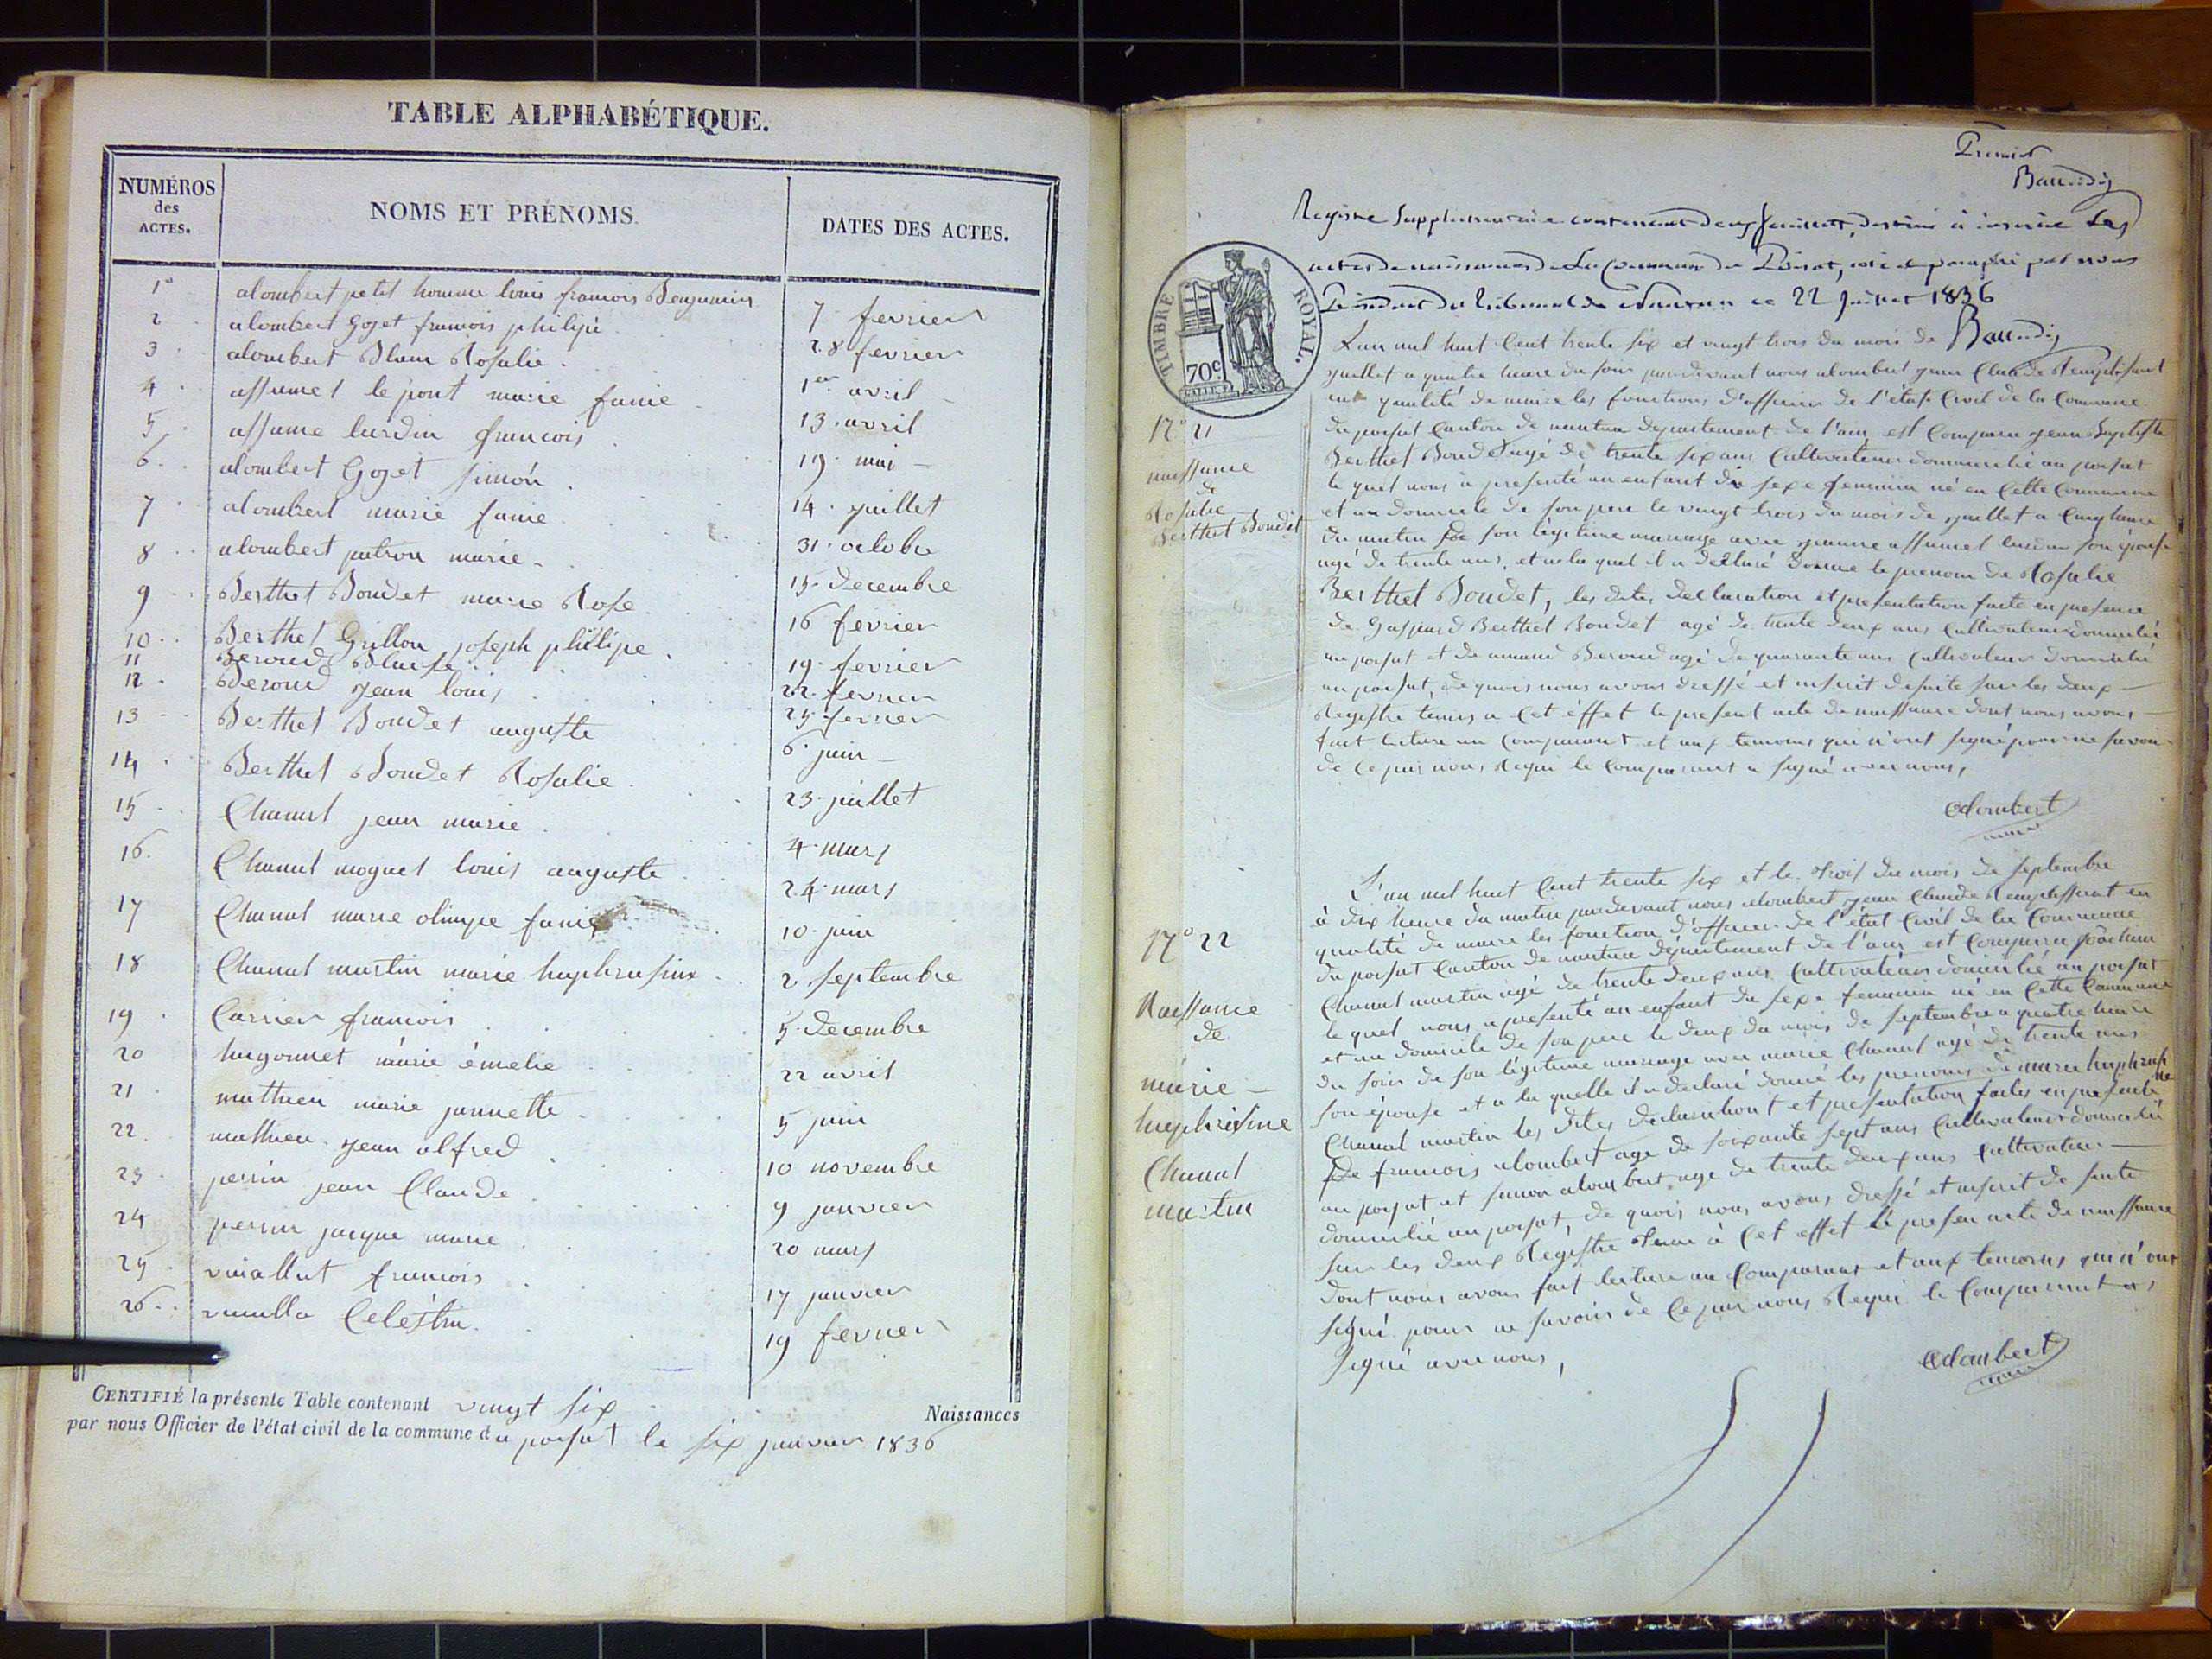 TABLE ALPHABÉTIQUE.
NUMÉROS des ACTES. NOMS ET PRÉNOMS. DATES DES ACTES.
1° alombert petit homme louis francois Benjamin 7 fevrier
2 alombert Gojet francois philipe 28 fevrier
3 alombert Blum Rosalie 1er avril
4 assumel le pont marie fanie 13 avril
5 assume lurdin francois 19 mai
6 alombert Gojet simon 14 juillet
7 alombert marie fanie 31 octobre
8 alombert patron marie 15 decembre
9 Berthet Boudet marie Rose 16 fevrier
10 Berthet Grillon joseph philipe 19 fevrier
11 Beroud 22 fevrier
12 Beroud jean louis 25 fevrier
13 Berthet Boudet auguste 6 juin
14 Berthet Boudet Rosalie 23 juillet
15 Chanal jean marie 4 mars
16 Chanal moguet louis auguste 24 mars
17 Chanal marie olimpe fanie 10 juin
18 Chanal martin marie huphrasine 2 septembre
19 Carrier francois 5 decembre
20 hugonnet marie émelie 22 avril
21 mathieu marie jannette 5 juin
22 mathieu jean alfred 10 novembre
23 perrin jean Claude 9 janvier
24 perrin jacque marie 20 mars
25 vuallat francois 17 janvier
26 vuilla Celestin 19 fevrier
CERTIFIÉ la présente Table contenant vingt six Naissances
par nous Officier de l'état civil de la commune du poisat le six janvier 1836
Premier
Baudin
Registre Supplementaire contenant deux feuillets, destiné à inscrire les
actes de naissances de la Commune du Poisat, coté et paraphé par nous
President du Tribunal de Nantua ce 22 Juillet 1836
TIMBRE ROYAL.
70c
L'an mil huit Cent trente six et vingt trois du mois de
juillet a quatre heure du soir pardevant nous alombert jean Claude Remplissant
en qualité de maire les fonctions d'officier de l'état Civil de la Commune
N° 21
du poisat Canton de nantua departement de l'ain est Comparu jean Baptiste
Berthet Boudet agé de trente six ans Cultivateur domicilié au poisat
naissance
de
Rosalie
Berthet Boudet
le quel nous a presenté un enfant du sexe feminin né en Cette Commune
et au domicile de son pere le vingt trois du mois de juillet a Cinq heure
du matin de son légitime mariage avec jeanne assumel lurdin son épouse
agé de trente ans, et a la quel il a déclaré donné le prenom de Rosalie
Berthet Boudet, les dites declaration et presentation faite en presence
de Gaspard Berthet Boudet agé de trente deux ans Cultivateur domicilié
au poisat et de Beroud agé de quarante ans Cultivateur domicilié
au poisat, de quois nous avons dressé et inscrit de suite sur les deux
Registre tenus a Cet éffet le present acte de naissance dont nous avons
fait lecture au Comparant et aux temoins qui n'ont signé pour ne savoir
de Ce par nous Requi le Comparant a signé avec nous,
alombert
maire
L'an mil huit Cent trente six et le trois du mois de septembre
à dix heure du matin pardevant nous alombert jean Claude Remplissant en
qualité de maire les fonction d'officier de l'état Civil de la Commune
N° 22
du poisat Canton de nantua département de l'ain est Comparu joachim
Chanal martin agé de trente deux ans Cultivateur domicilié au poisat
Naissance
de
marie
huphrasine
Chanal
martin
le quel nous a presenté un enfant du sexe feminin né en Cette Commune
et au domicile de son pere le deux du mois de septembre a quatre heure
du soir de son légitime mariage avec marie Chanal agé de trente ans
son épouse et a la quelle il a declaré donné les prenoms de marie huphrasine
Chanal martin les dites declaration et presentation faites en presence
De francois alombert agé de soixante sept ans Cultivateur domicilié
au poisat et simon alombert agé de trente deux ans Cultivateur
domicilié au poisat, de quois nous avons dressé et inscrit de suite
sur les deux Régistre tenu à Cet effet le presen acte de naissance
dont nous avons fait lecture au Comparant et aux temoins qui n'ont
signé pour ne savoir de Ce par nous Requi le Comparant a
signé avec nous,
alombert
maire